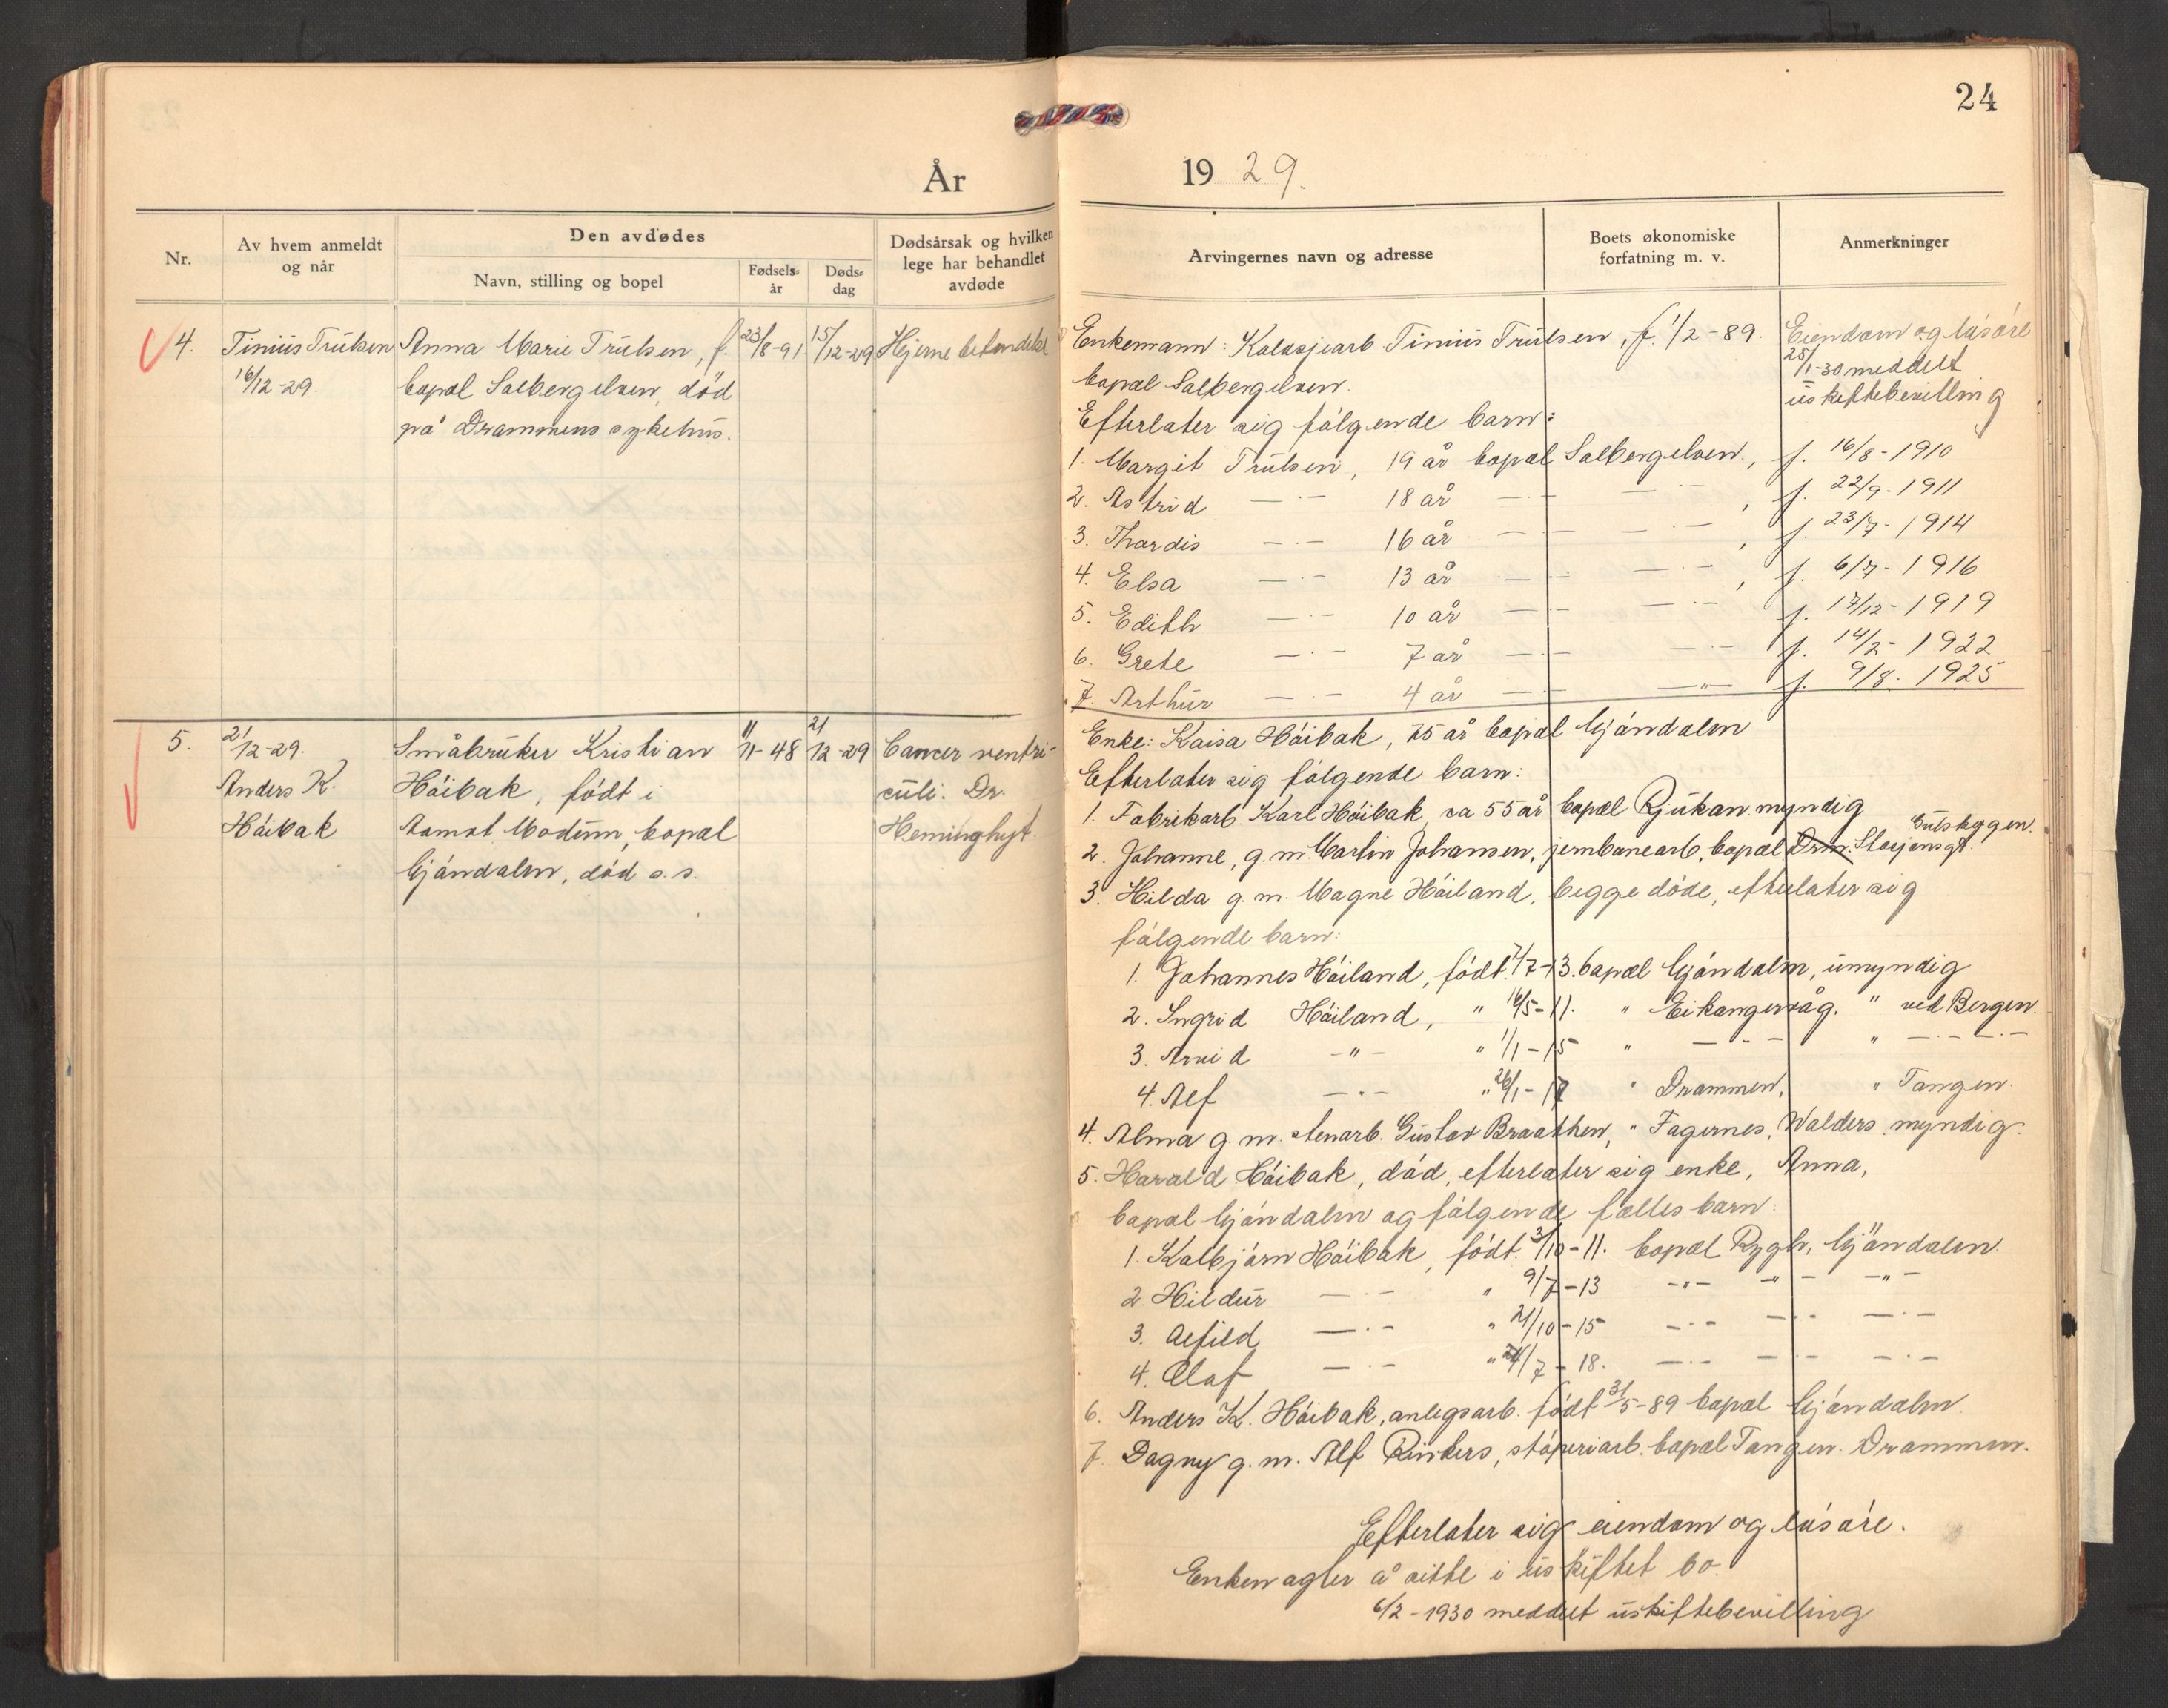 24
År 19 29.
Nr.
Av hvem anmeldt og når
Den avdødes
Navn, stilling og bopel
Fødsels=år
Døds=dag
Dødsårsak og hvilken lege har behandlet avdøde
Arvingernes navn og adresse
Boets økonomiske forfatning m. v.
Anmerkninger
4. Tinius Trulsen Anna Marie Trulsen, f. 23/8-91 15/12-29 Hjerne betendelse
16/12-29. bopæl Solbergelven, død
på Drammens sykehus.
Enkemann: Tinius Trulsen, f. 1/2-89. Eiendom og løsøre
bopæl Solbergelven. 25/1-30 meddelt
uskiftebevilling
Efterlater sig følgende barn:
1. Margit Trulsen, 19 år bopæl Solbergelven., f. 16/8-1910
2. Astrid —·— 18 år —·— —·—, f. 22/9-1911
3. Thordis —·— 16 år —·— —·—, f. 23/7-1914
4. Elsa —·— 13 år —·— —·—, f. 6/7-1916
5. Edith —·— 10 år —·— —·— f. 17/12-1919
6. Grete —·— 7 år —·— —·— f. 14/2-1922
7. Arthur —·— 4 år —·— —"— f. 9/8-1925
5. 21/12-29. Småbruker Kristian 11/11-48 21/12-29 Cancer ventri-
Anders K. Høibak, født i culi. Dr.
Høibak Aamot Modum, bopæl
Gjøndalen, død s. s.
Enke: Kaisa Høibak, 75 år bopæl Gjøndalen
Efterlater sig følgende barn:
1. Fabrikarb. Karl Høibak, ca 55 år bopæl Rjukan. myndig
2. Johanne, g. m. Martin Johansen, jernbanearb. bopæl Drm. Stasjonsgt. Gulskogen.
3. Hilda g. m. Magne Høiland, begge døde, efterlater sig
følgende barn:
1. Johannes Høiland, født 7/7-13. bopæl Gjøndalen, umyndig
2. Ingrid Høiland, " 16/5-11. " Eikangervåg. " ved Bergen.
3. Arvid —"— " 1/1-15 " — - - " —·—·—
4. Alf —·— " 26/1-17 " Drammen, " Tangen.
4. Alma g. m. stenarb. Gustav Braathen, " Fagernes, Valders myndig.
5. Harald Høibak, død, efterlater sig enke, Anna,
bopæl Gjøndalen og følgende fælles barn:
1. Kolbjørn Høibak, født 3/10-11. bopæl Rygh, Gjøndalen.
2. Hildur —·— " 9/7-13 —"— —"— —"—
3. Alfild —·— " 21/10-15 —·— —·— —·—
4. Olaf —·— " 24/7-18. —·— —·— —·—
6. Anders K. Høibak, anlegsarb. født 31/5-89 bopæl Gjøndalen.
7. Dagny g. m. Alf støperiarb. bopæl Tangen. Drammen.
Efterlater sig eiendom og løsøre.
Enken agter å sitte i uskiftet bo.
6/2-1930 meddelt uskiftebevilling